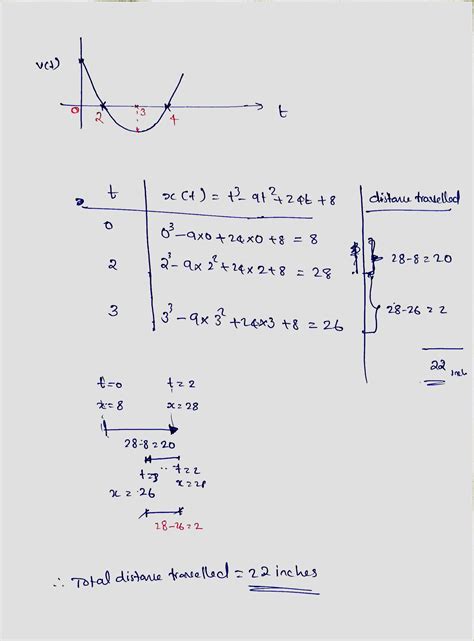 v(t)
0 2 3 4 t
t x(t) = t³ - 9t² + 24t + 8 distance travelled
0 0³ - 9×0 + 24×0 + 8 = 8
28-8=20
2 2³ - 9×2² + 24×2+8 = 28
3 3³ - 9×3² + 24×3 + 8 = 26 28-26=2
22 inch
t=0 t=2
x=8 x=28
28-8=20
t=3 t=2
x=26 x=28
28-26=2
∴ Total distance travelled = 22 inches